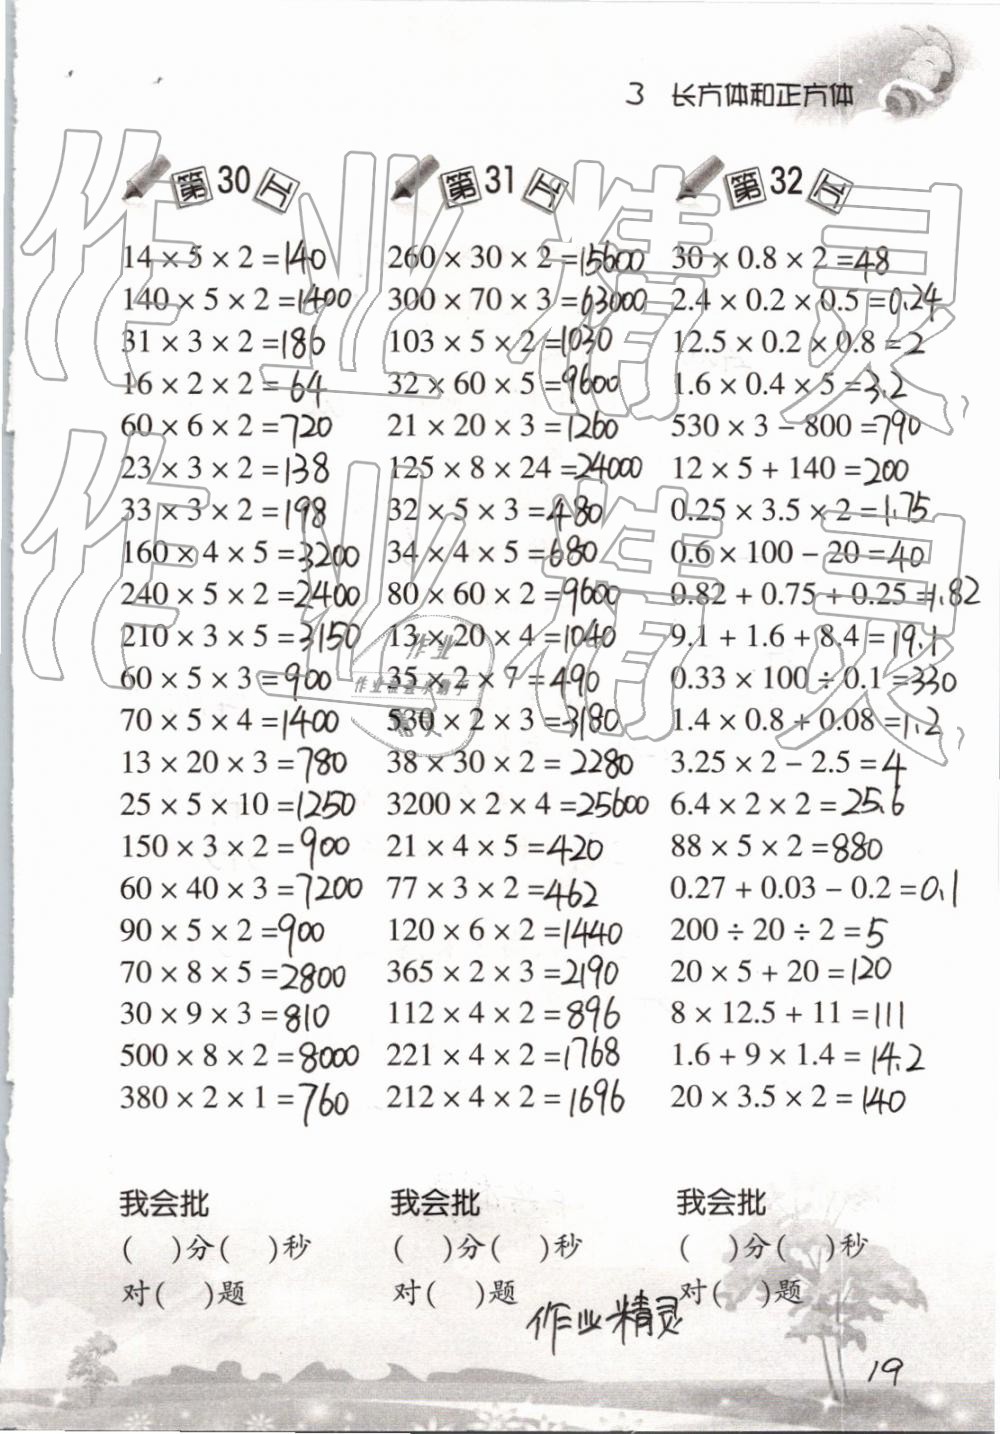 3 长方体和正方体
第30页
14 × 5 × 2 = 140
140 × 5 × 2 = 1400
31 × 3 × 2 = 186
16 × 2 × 2 = 64
60 × 6 × 2 = 720
23 × 3 × 2 = 138
33 × 3 × 2 = 198
160 × 4 × 5 = 3200
240 × 5 × 2 = 2400
210 × 3 × 5 = 3150
60 × 5 × 3 = 900
70 × 5 × 4 = 1400
13 × 20 × 3 = 780
25 × 5 × 10 = 1250
150 × 3 × 2 = 900
60 × 40 × 3 = 7200
90 × 5 × 2 = 900
70 × 8 × 5 = 2800
30 × 9 × 3 = 810
500 × 8 × 2 = 8000
380 × 2 × 1 = 760
我会批
( )分( )秒
对( )题
第31页
260 × 30 × 2 = 15600
300 × 70 × 3 = 63000
103 × 5 × 2 = 1030
32 × 60 × 5 = 9600
21 × 20 × 3 = 1260
125 × 8 × 24 = 24000
32 × 5 × 3 = 480
34 × 4 × 5 = 680
80 × 60 × 2 = 9600
13 × 20 × 4 = 1040
35 × 2 × 7 = 490
530 × 2 × 3 = 3180
38 × 30 × 2 = 2280
3200 × 2 × 4 = 25600
21 × 4 × 5 = 420
77 × 3 × 2 = 462
120 × 6 × 2 = 1440
365 × 2 × 3 = 2190
112 × 4 × 2 = 896
221 × 4 × 2 = 1768
212 × 4 × 2 = 1696
我会批
( )分( )秒
对( )题
第32页
30 × 0.8 × 2 = 48
2.4 × 0.2 × 0.5 = 0.24
12.5 × 0.2 × 0.8 = 2
1.6 × 0.4 × 5 = 3.2
530 × 3 − 800 = 790
12 × 5 + 140 = 200
0.25 × 3.5 × 2 = 1.75
0.6 × 100 − 20 = 40
0.82 + 0.75 + 0.25 = 1.82
9.1 + 1.6 + 8.4 = 19.1
0.33 × 100 ÷ 0.1 = 330
1.4 × 0.8 + 0.08 = 1.2
3.25 × 2 − 2.5 = 4
6.4 × 2 × 2 = 25.6
88 × 5 × 2 = 880
0.27 + 0.03 − 0.2 = 0.1
200 ÷ 20 ÷ 2 = 5
20 × 5 + 20 = 120
8 × 12.5 + 11 = 111
1.6 + 9 × 1.4 = 14.2
20 × 3.5 × 2 = 140
我会批
( )分( )秒
对( )题
作业精灵
19
作业精灵
作业精灵
作业